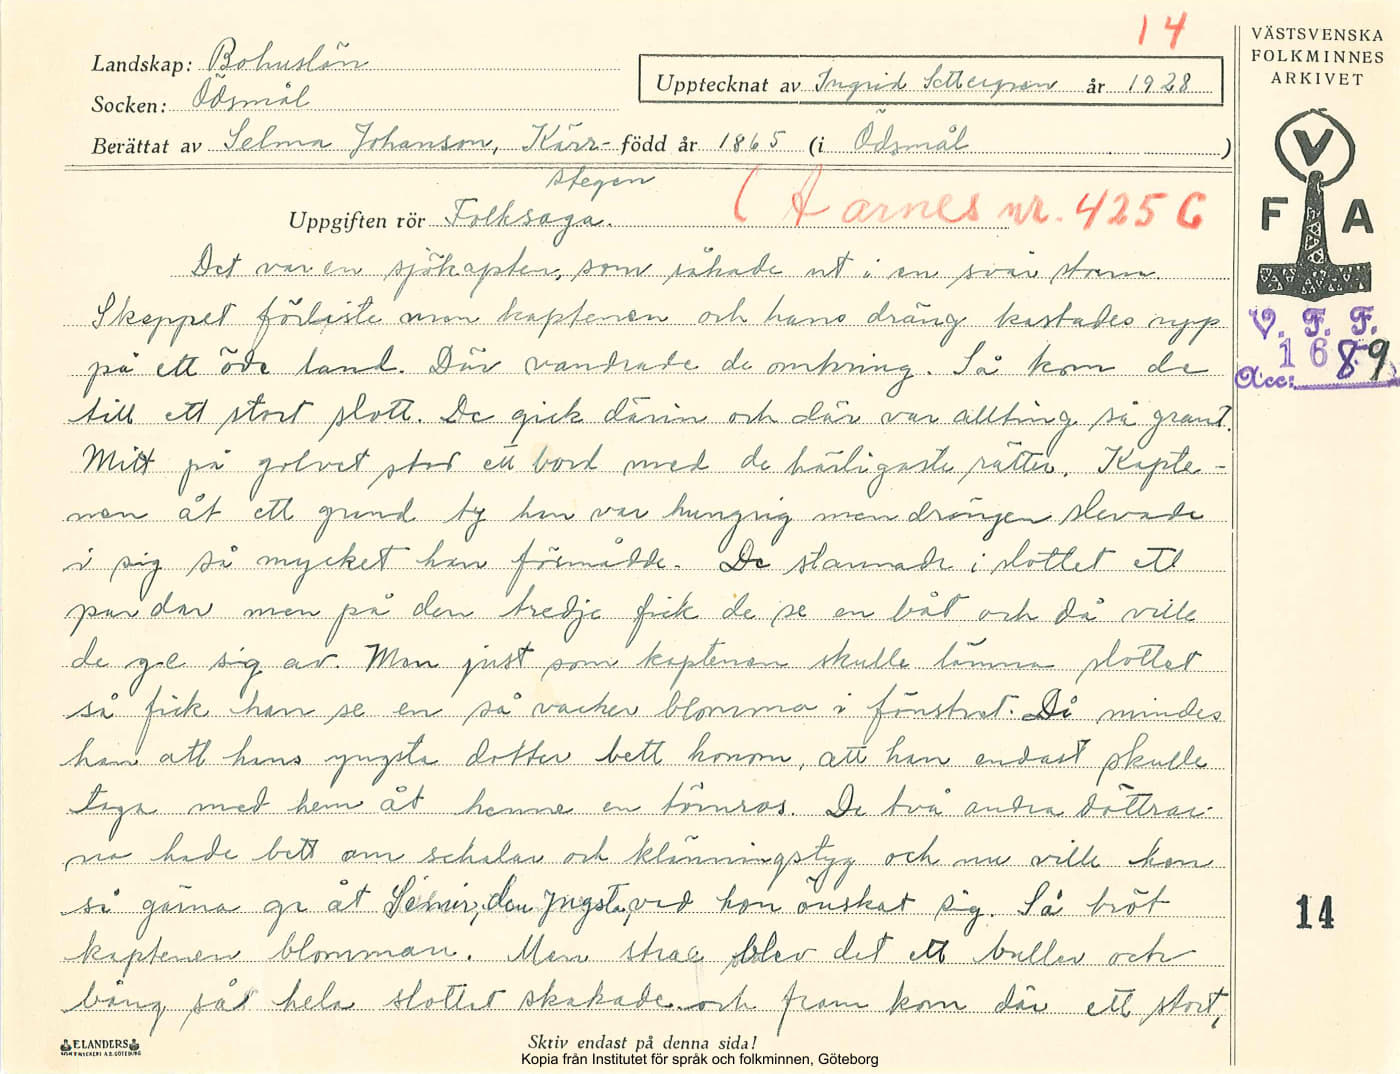 14
Landskap: Bohuslän
Socken: Ödsmål
Upptecknat av Ingrid Settergren år 1928
Berättat av Selma Johanson, Kärr- född år 1865 (i Ödsmål )
stegen
Uppgiften rör Folksaga. (Aarnes nr. 425 C
Det var en sjökapten, som råkade ut i en svår storm.
Skeppet förliste men kaptenen och hans dräng kastades upp
på ett öde land. Där vandrade de omkring. Så kom de
till ett stort slott. De gick därin och där var allting så grant.
Mitt på golvet stod ett bord med de härligaste rätter. Kapte-
nen åt ett grand ty han var hungrig men drängen slevade
i sig så mycket han förmådde. De stannade i slottet ett
par dar men på den tredje fick de se en båt och då ville
de ge sig av. Men just som kaptenen skulle lämna slottet
så fick han se en så vacker blomma i fönstret. Då mindes
han att hans yngsta dotter bett honom, att han endast skulle
taga med hem åt henne en törnros. De två andra döttrar-
na hade bett om schalar och klänningstyg och nu ville han
så gärna ge åt den yngsta, vad hon önskat sig. Så bröt
kaptenen blomman. Men strax blev det ett buller och
bång så hela slottet skakade och fram kom där ett stort,
Skriv endast på denna sida!
ELANDERS
Kopia från Institutet för språk och folkminnen, Göteborg
VÄSTSVENSKA
FOLKMINNES
ARKIVET
V
F A
V. F. F.
1689
Acc:
14